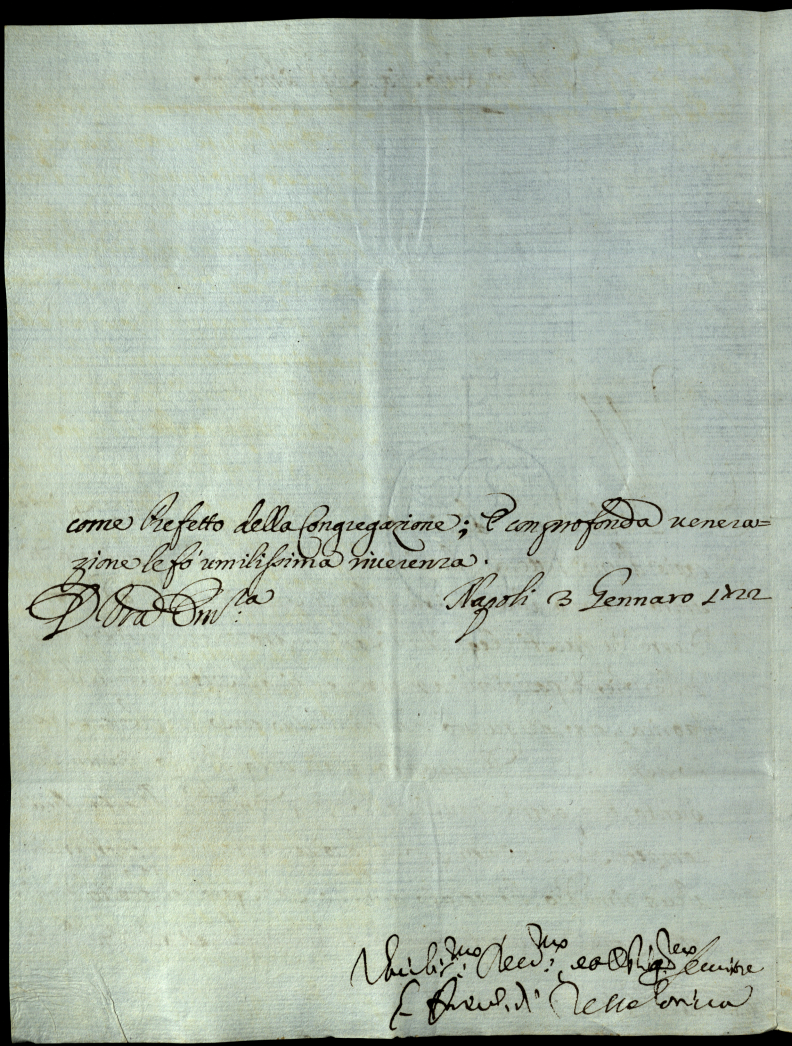 come Prefetto della Congregazione; E con profonda venera=
zione le fò umilissima riverenza.
D. V̄ra Em:za Napoli 3 Gennaro 1722
Umilis:mo Dev:mo, ed Oblig:mo Servitore
L' Arciv. di Tessalonica